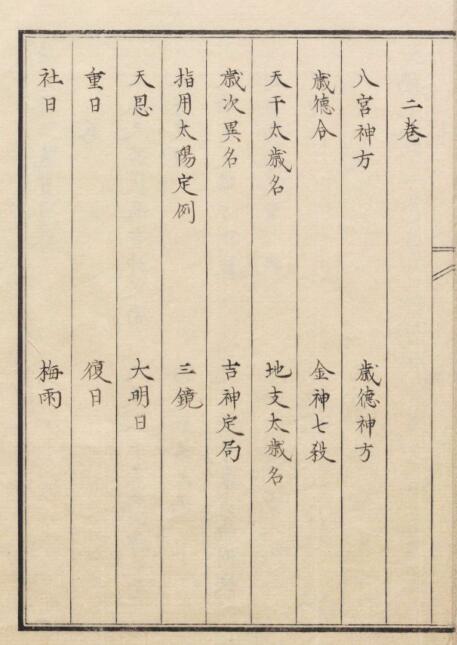 二卷
八宮神方 歲德神方
歲德合 金神七殺
天干太歲名 地支太歲名
歲次異名 吉神定局
指用太陽定例 三鏡
天恩 大明日
重日 復日
社日 梅雨